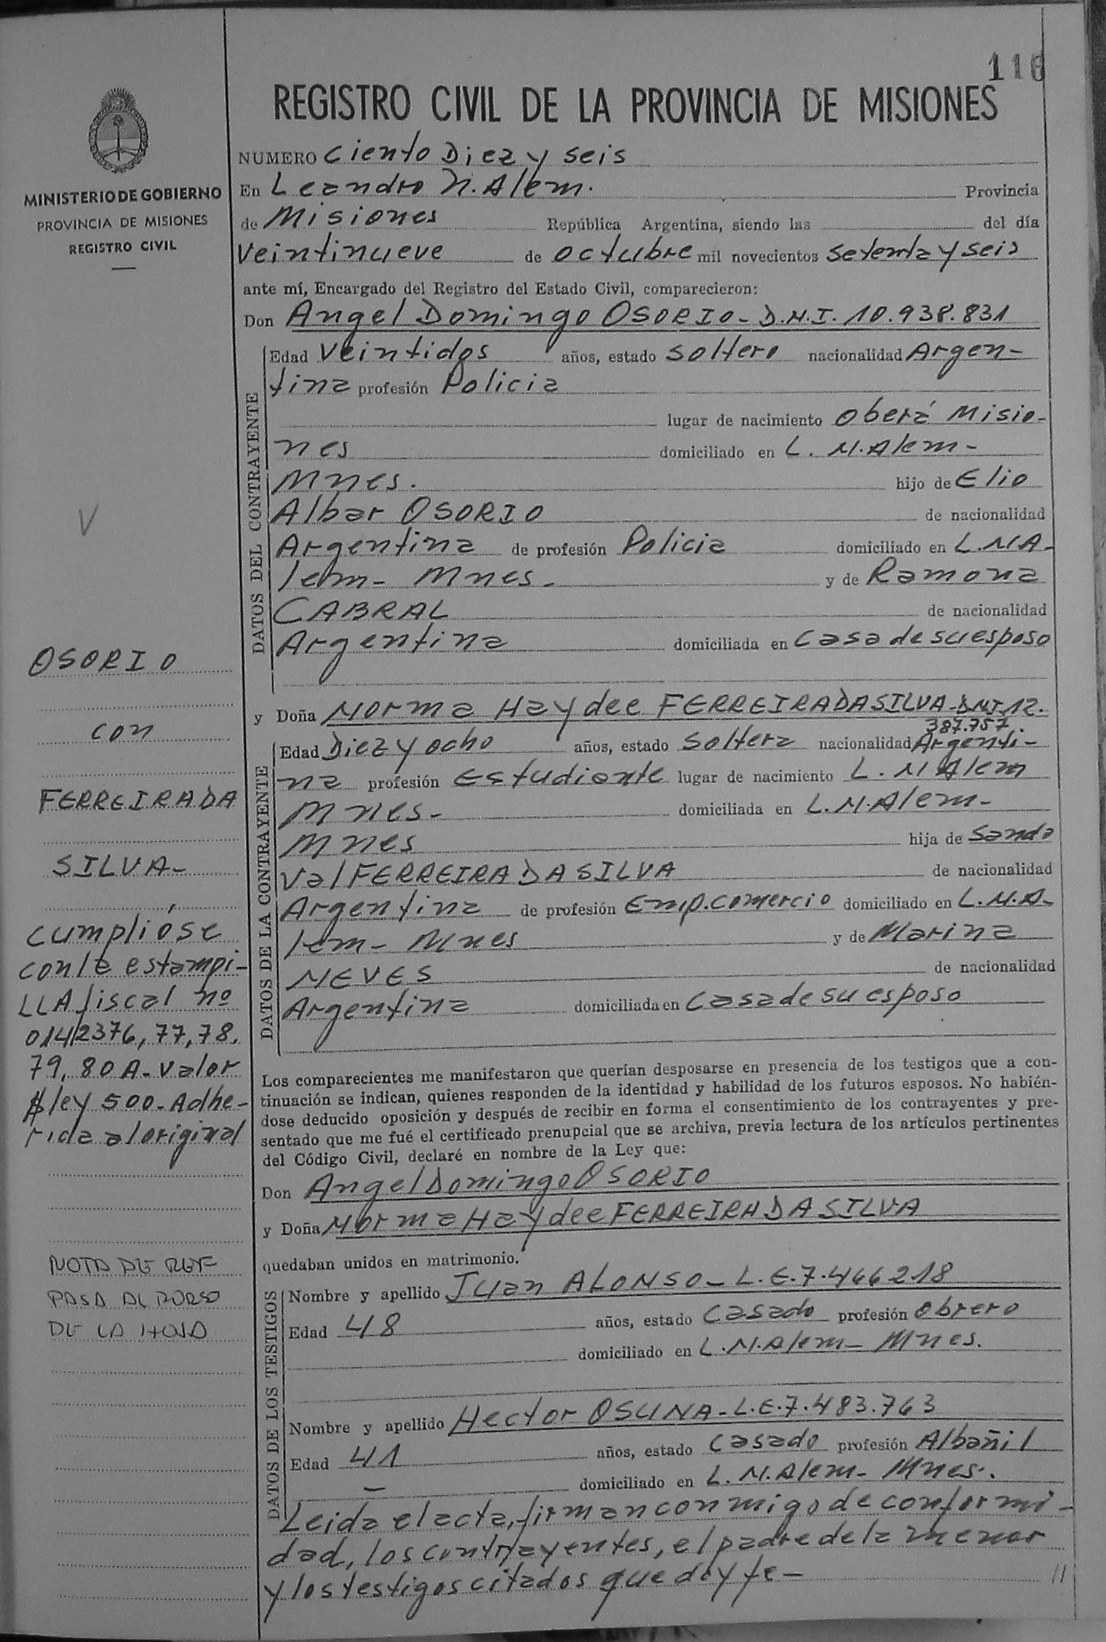 116
REGISTRO CIVIL DE LA PROVINCIA DE MISIONES
MINISTERIO DE GOBIERNO
PROVINCIA DE MISIONES
REGISTRO CIVIL
NUMERO Ciento Diez y seis
En Leandro N. Alem. Provincia
de Misiones República Argentina, siendo las del día
Veintinueve de octubre mil novecientos setenta y seis
ante mí, Encargado del Registro del Estado Civil, comparecieron:
Don Angel Domingo OSORIO - D.N.I. 10.938.831
DATOS DEL CONTRAYENTE
Edad Veintidos años, estado soltero nacionalidad Argen-
tina profesión Policia
lugar de nacimiento Oberá Misio-
nes domiciliado en L. N. Alem -
Mnes. hijo de Elio
Albar OSORIO de nacionalidad
Argentina de profesión Policia domiciliado en L.N.A-
lem - Mnes - y de Ramona
CABRAL de nacionalidad
Argentina domiciliada en Casa de su esposo
y Doña Norma Haydee FERREIRA DA SILVA - D.N.I. 12.
387.757.
DATOS DE LA CONTRAYENTE
Edad Diez y ocho años, estado soltera nacionalidad Argenti-
na profesión Estudiante lugar de nacimiento L. N Alem
Mnes - domiciliada en L. N. Alem -
Mnes hija de Sando
val FERREIRA DA SILVA de nacionalidad
Argentina de profesión Emp. comercio domiciliado en L.N.A-
lem - Mnes y de Marina
NEVES de nacionalidad
Argentina domiciliada en Casa de su esposo
Los comparecientes me manifestaron que querían desposarse en presencia de los testigos que a con-
tinuación se indican, quienes responden de la identidad y habilidad de los futuros esposos. No habién-
dose deducido oposición y después de recibir en forma el consentimiento de los contrayentes y pre-
sentado que me fué el certificado prenupcial que se archiva, previa lectura de los artículos pertinentes
del Código Civil, declaré en nombre de la Ley que:
Don Angel Domingo OSORIO
y Doña Norma Haydee FERREIRA DA SILVA
quedaban unidos en matrimonio.
DATOS DE LOS TESTIGOS
Nombre y apellido Juan ALONSO - L.E. 7.466218
Edad 48 años, estado Casado profesión obrero
domiciliado en L. N. Alem - Mnes.
Nombre y apellido Hector OSUNA - L.E. 7.483.763
Edad 41 años, estado Casado profesión Albañil
domiciliado en L. N. Alem - Mnes.
Leida el acta, firman conmigo de conformi-
dad, los contrayentes, el padre de la menor
y los testigos citados que doy fe - //
V
OSORIO
con
FERREIRA DA
SILVA -
cumplióse
con la estampi-
LLA fiscal nº
0142376, 77, 78,
79, 80 A - valor
$ ley 500 - Adhe-
rida al original
NOTA DE REF
PASA AL DORSO
DE LA HOJA